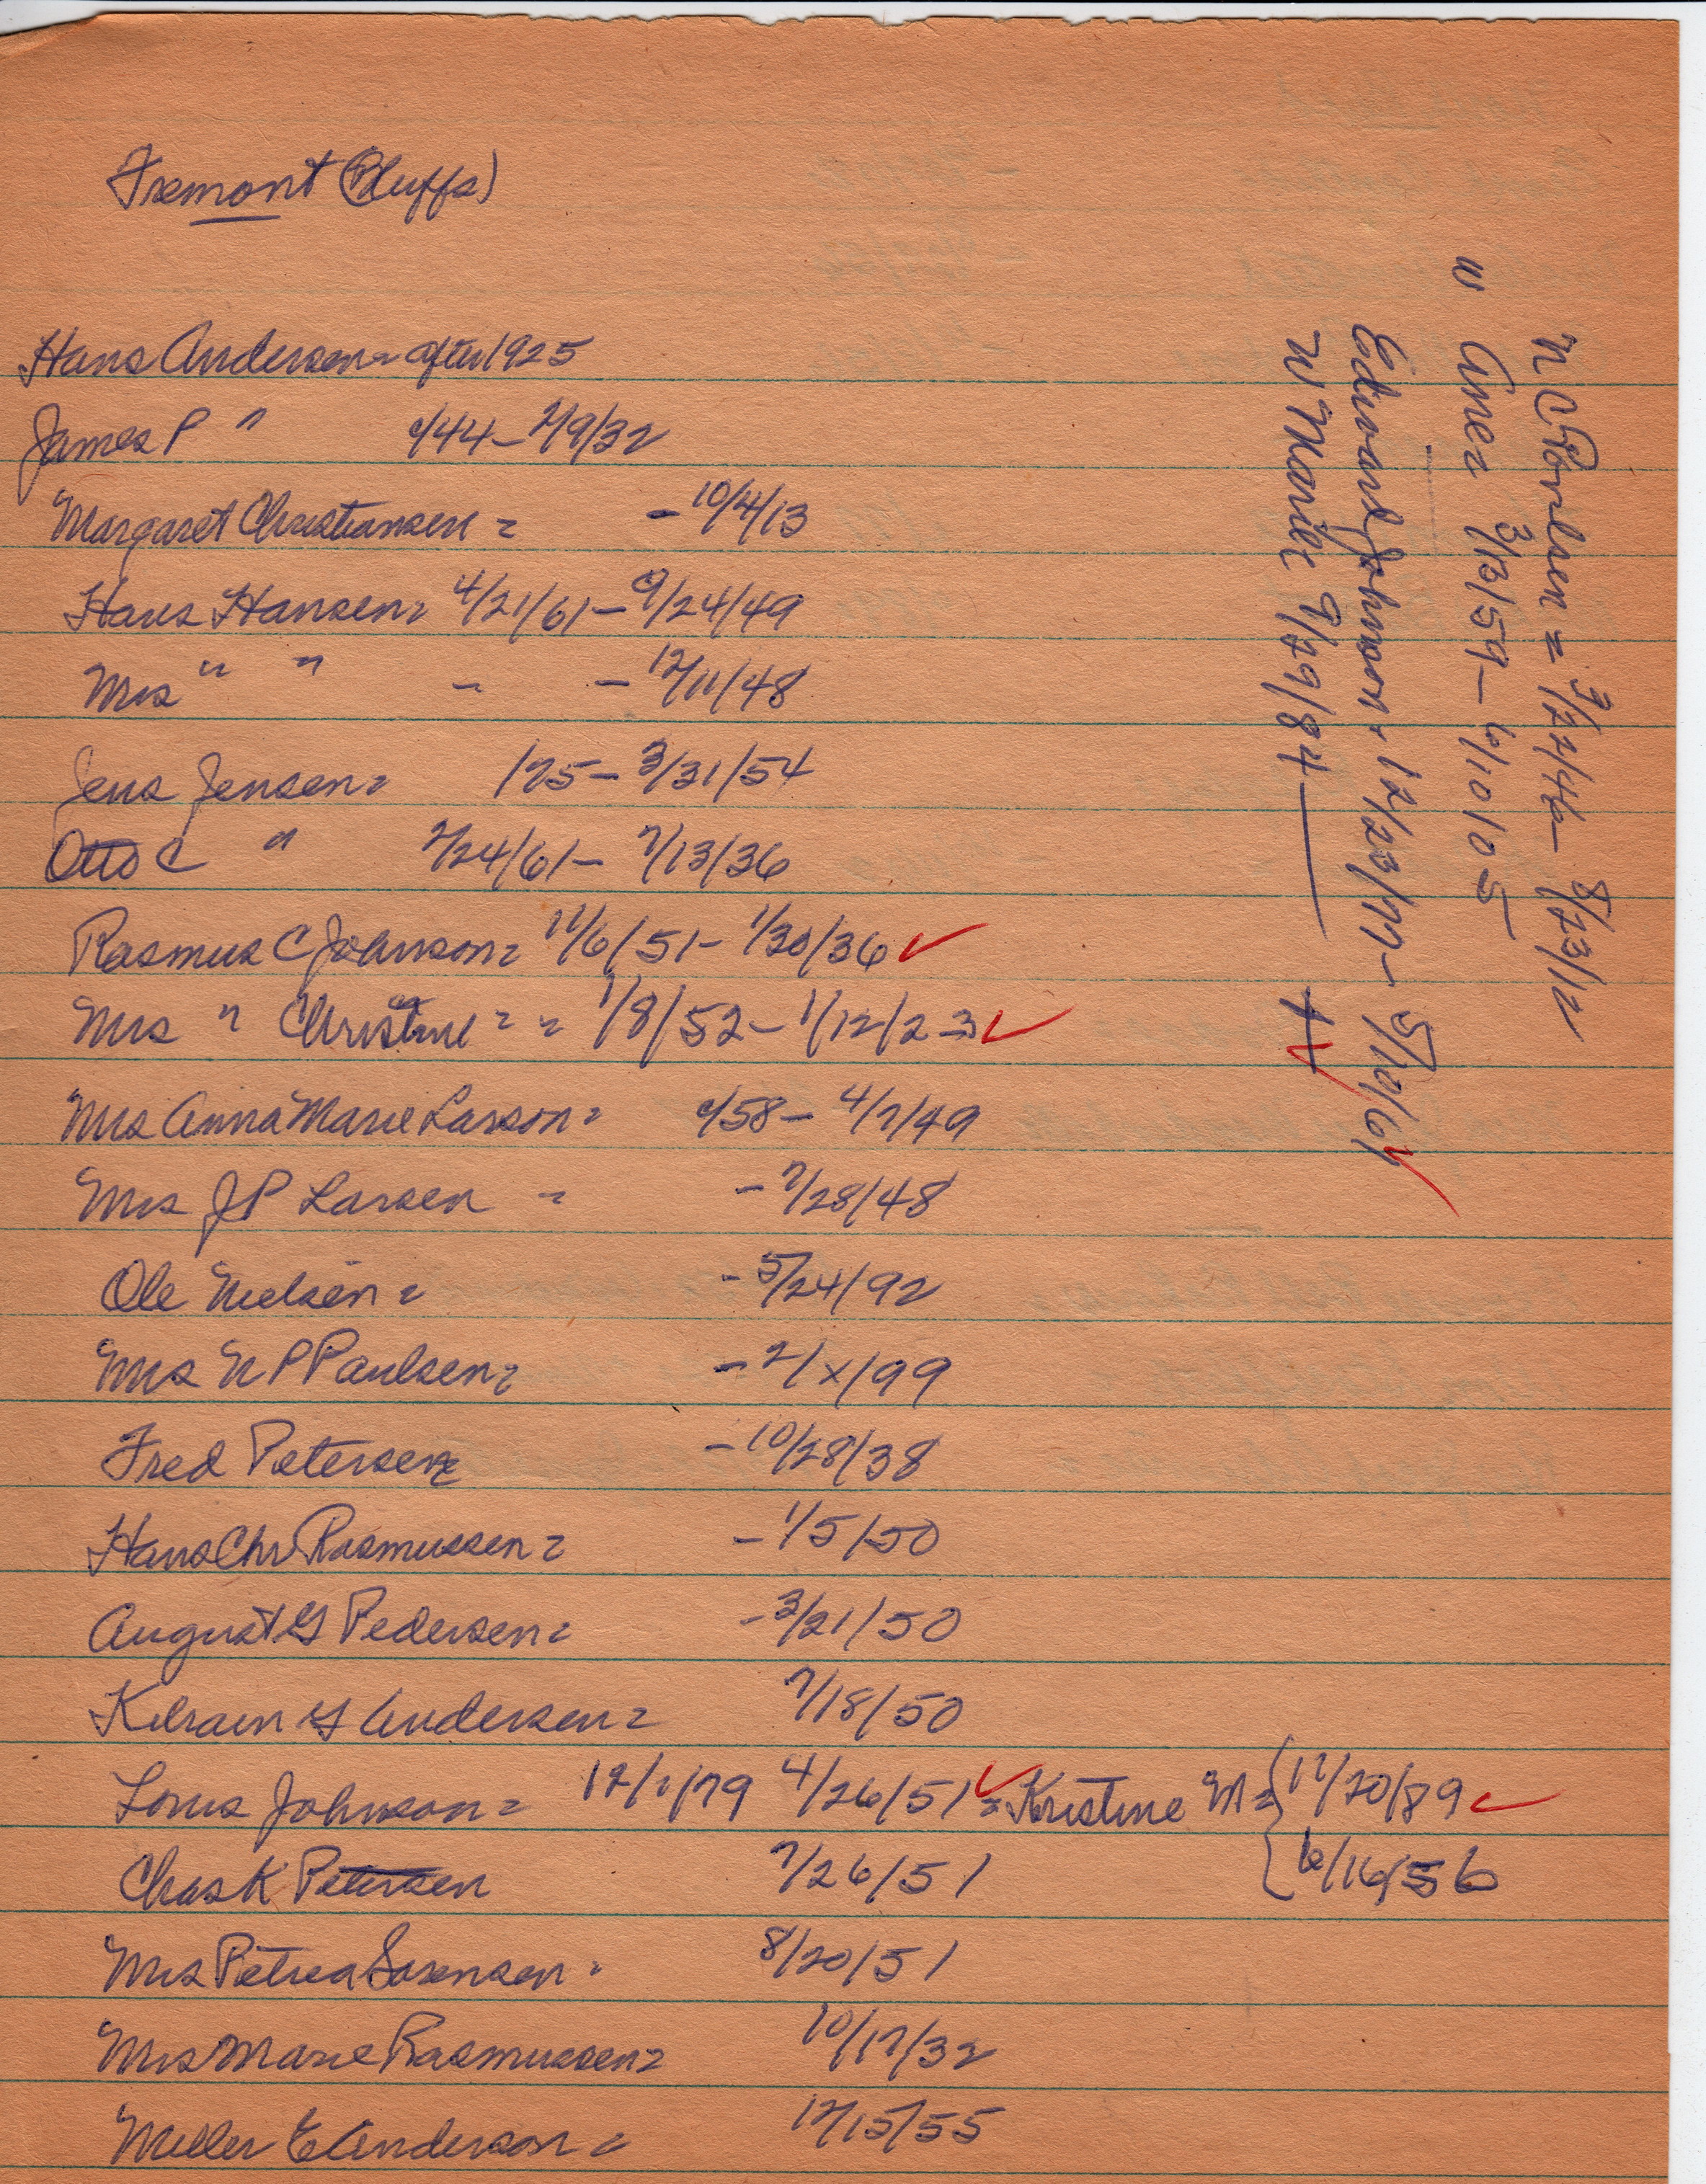 Fremont (Bluffs)
Hans Andersen = after 1925
James P " c/44 - 2/9/32
Margaret Christiansen = - 10/4/13
Hans Hansen = 4/21/61 - 9/24/49
Mrs " " - - 12/11/48
Jens Jensen = 125 - 3/31/54
Otto C " 2/24/61 - 7/13/36
Rasmus C Johnson = 11/6/51 - 1/30/36 ✓
Mrs " Christine = = 1/8/52 - 1/12/23 ✓
Mrs Anna Marie Larson = c/58 - 4/7/49
Mrs JP Larsen = - 7/28/48
Ole Nielsen = - 5/24/92
Mrs N P Paulsen = - 2/x/99
Fred Petersen = - 10/28/38
Hans Chr Rasmussen = - 1/5/50
August G Pedersen = - 3/21/50
Kilrain G Andersen = 7/18/50
Louis Johnson = 12/1/79 4/26/51 ✓ = Kristine M = { 11/20/89 ✓
Chas K Petersen 7/26/51 6/16/56
Mrs Petrea Sorensen = 8/20/51
Mrs Marie Rasmussen = 10/17/32
Miller E Anderson = 12/15/55
N C Povlsen = 3/22/46 - 8/23/12
w Ane 3/13/59 - 6/10/05
Edward Johnson = 12/23/77 - 5/10/61 ✓
w Marie 9/29/84 — + ✓